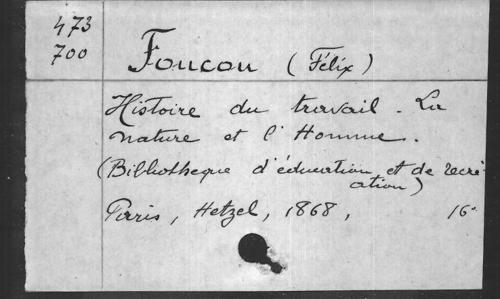 473
700
Foucou (Félix)
Histoire du travail - La
nature et l'Homme.
(Bibliotheque d'éducation et de recré
ation)
Paris, Hetzel, 1868, 16°